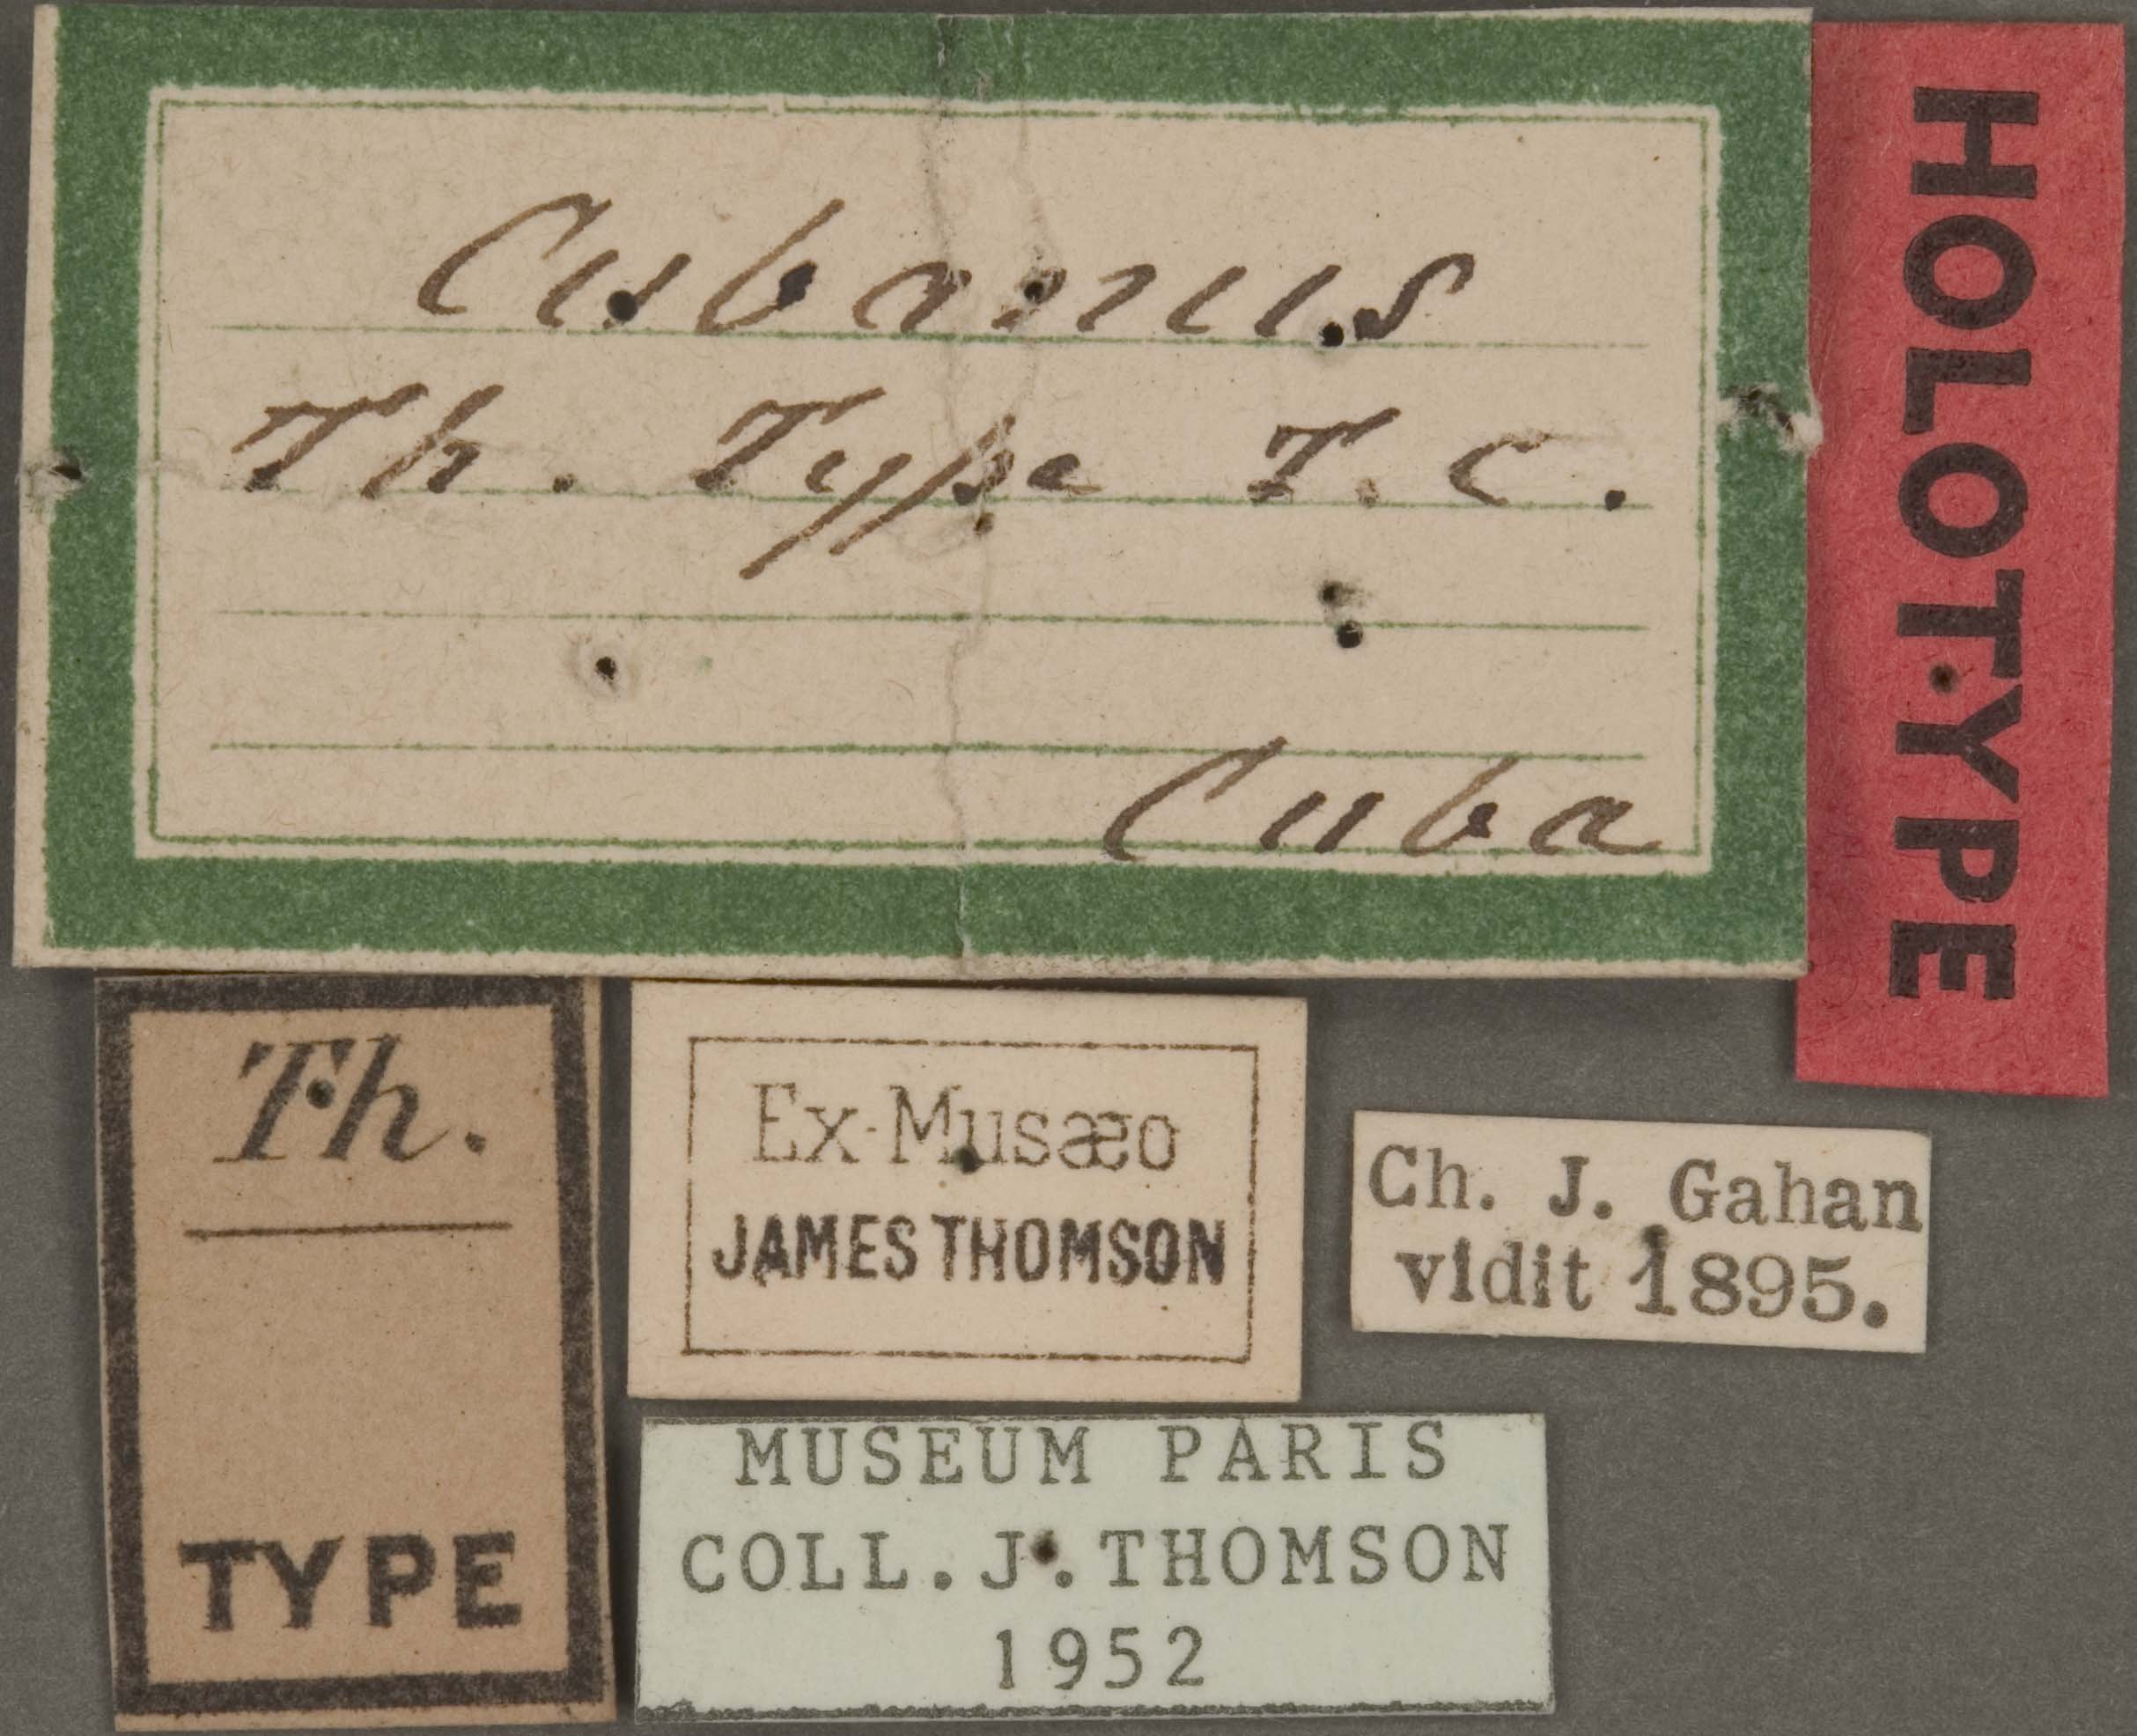 Cubanus
Th. Type T. C.
Cuba
HOLOTYPE
Th.
TYPE
Ex-Musæo
JAMES THOMSON
Ch. J. Gahan
vidit 1895.
MUSEUM PARIS
COLL. J. THOMSON
1952